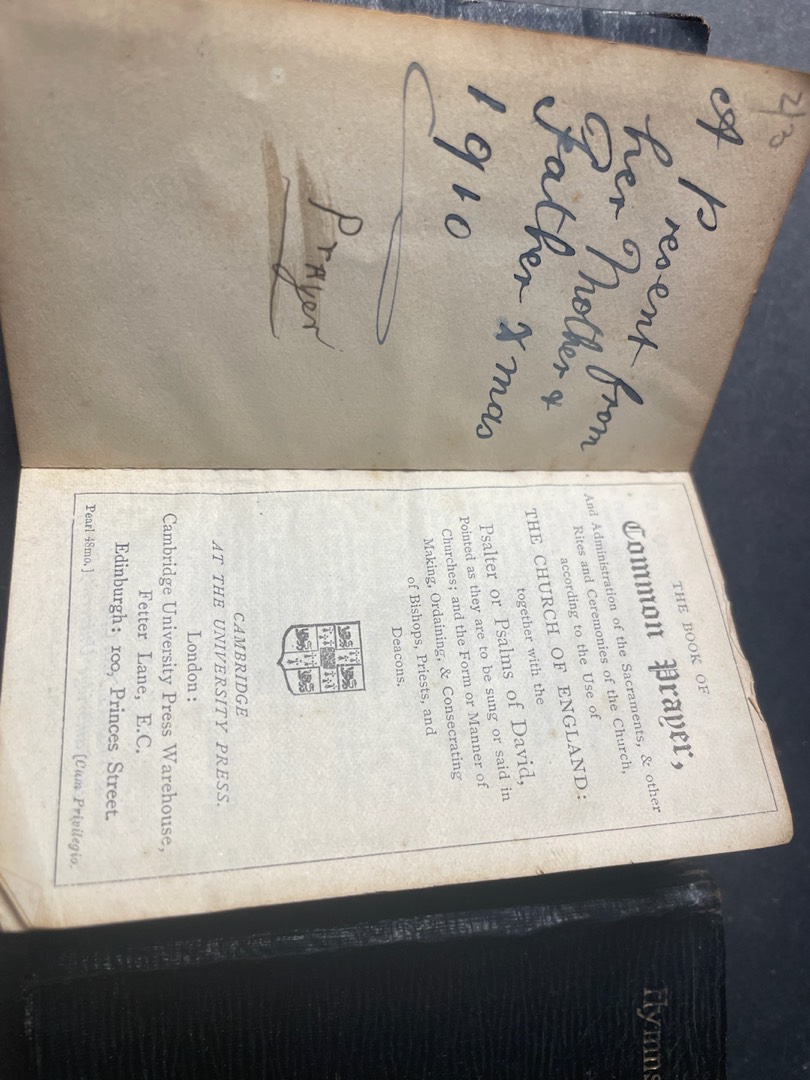 2/3
A Present
her Mother from
Father & Xmas
1910
Prayer
THE BOOK OF
Common Prayer,
And Administration of the Sacraments, & other
Rites and Ceremonies of the Church,
according to the Use of
THE CHURCH OF ENGLAND:
together with the
Psalter or Psalms of David,
Pointed as they are to be sung or said in
Churches; and the Form or Manner of
Making, Ordaining, & Consecrating
of Bishops, Priests, and
Deacons.
CAMBRIDGE
AT THE UNIVERSITY PRESS.
London:
Cambridge University Press Warehouse,
Fetter Lane, E.C.
Edinburgh: 100, Princes Street.
Pearl 48mo.] [Cum Privilegio.
Hymns